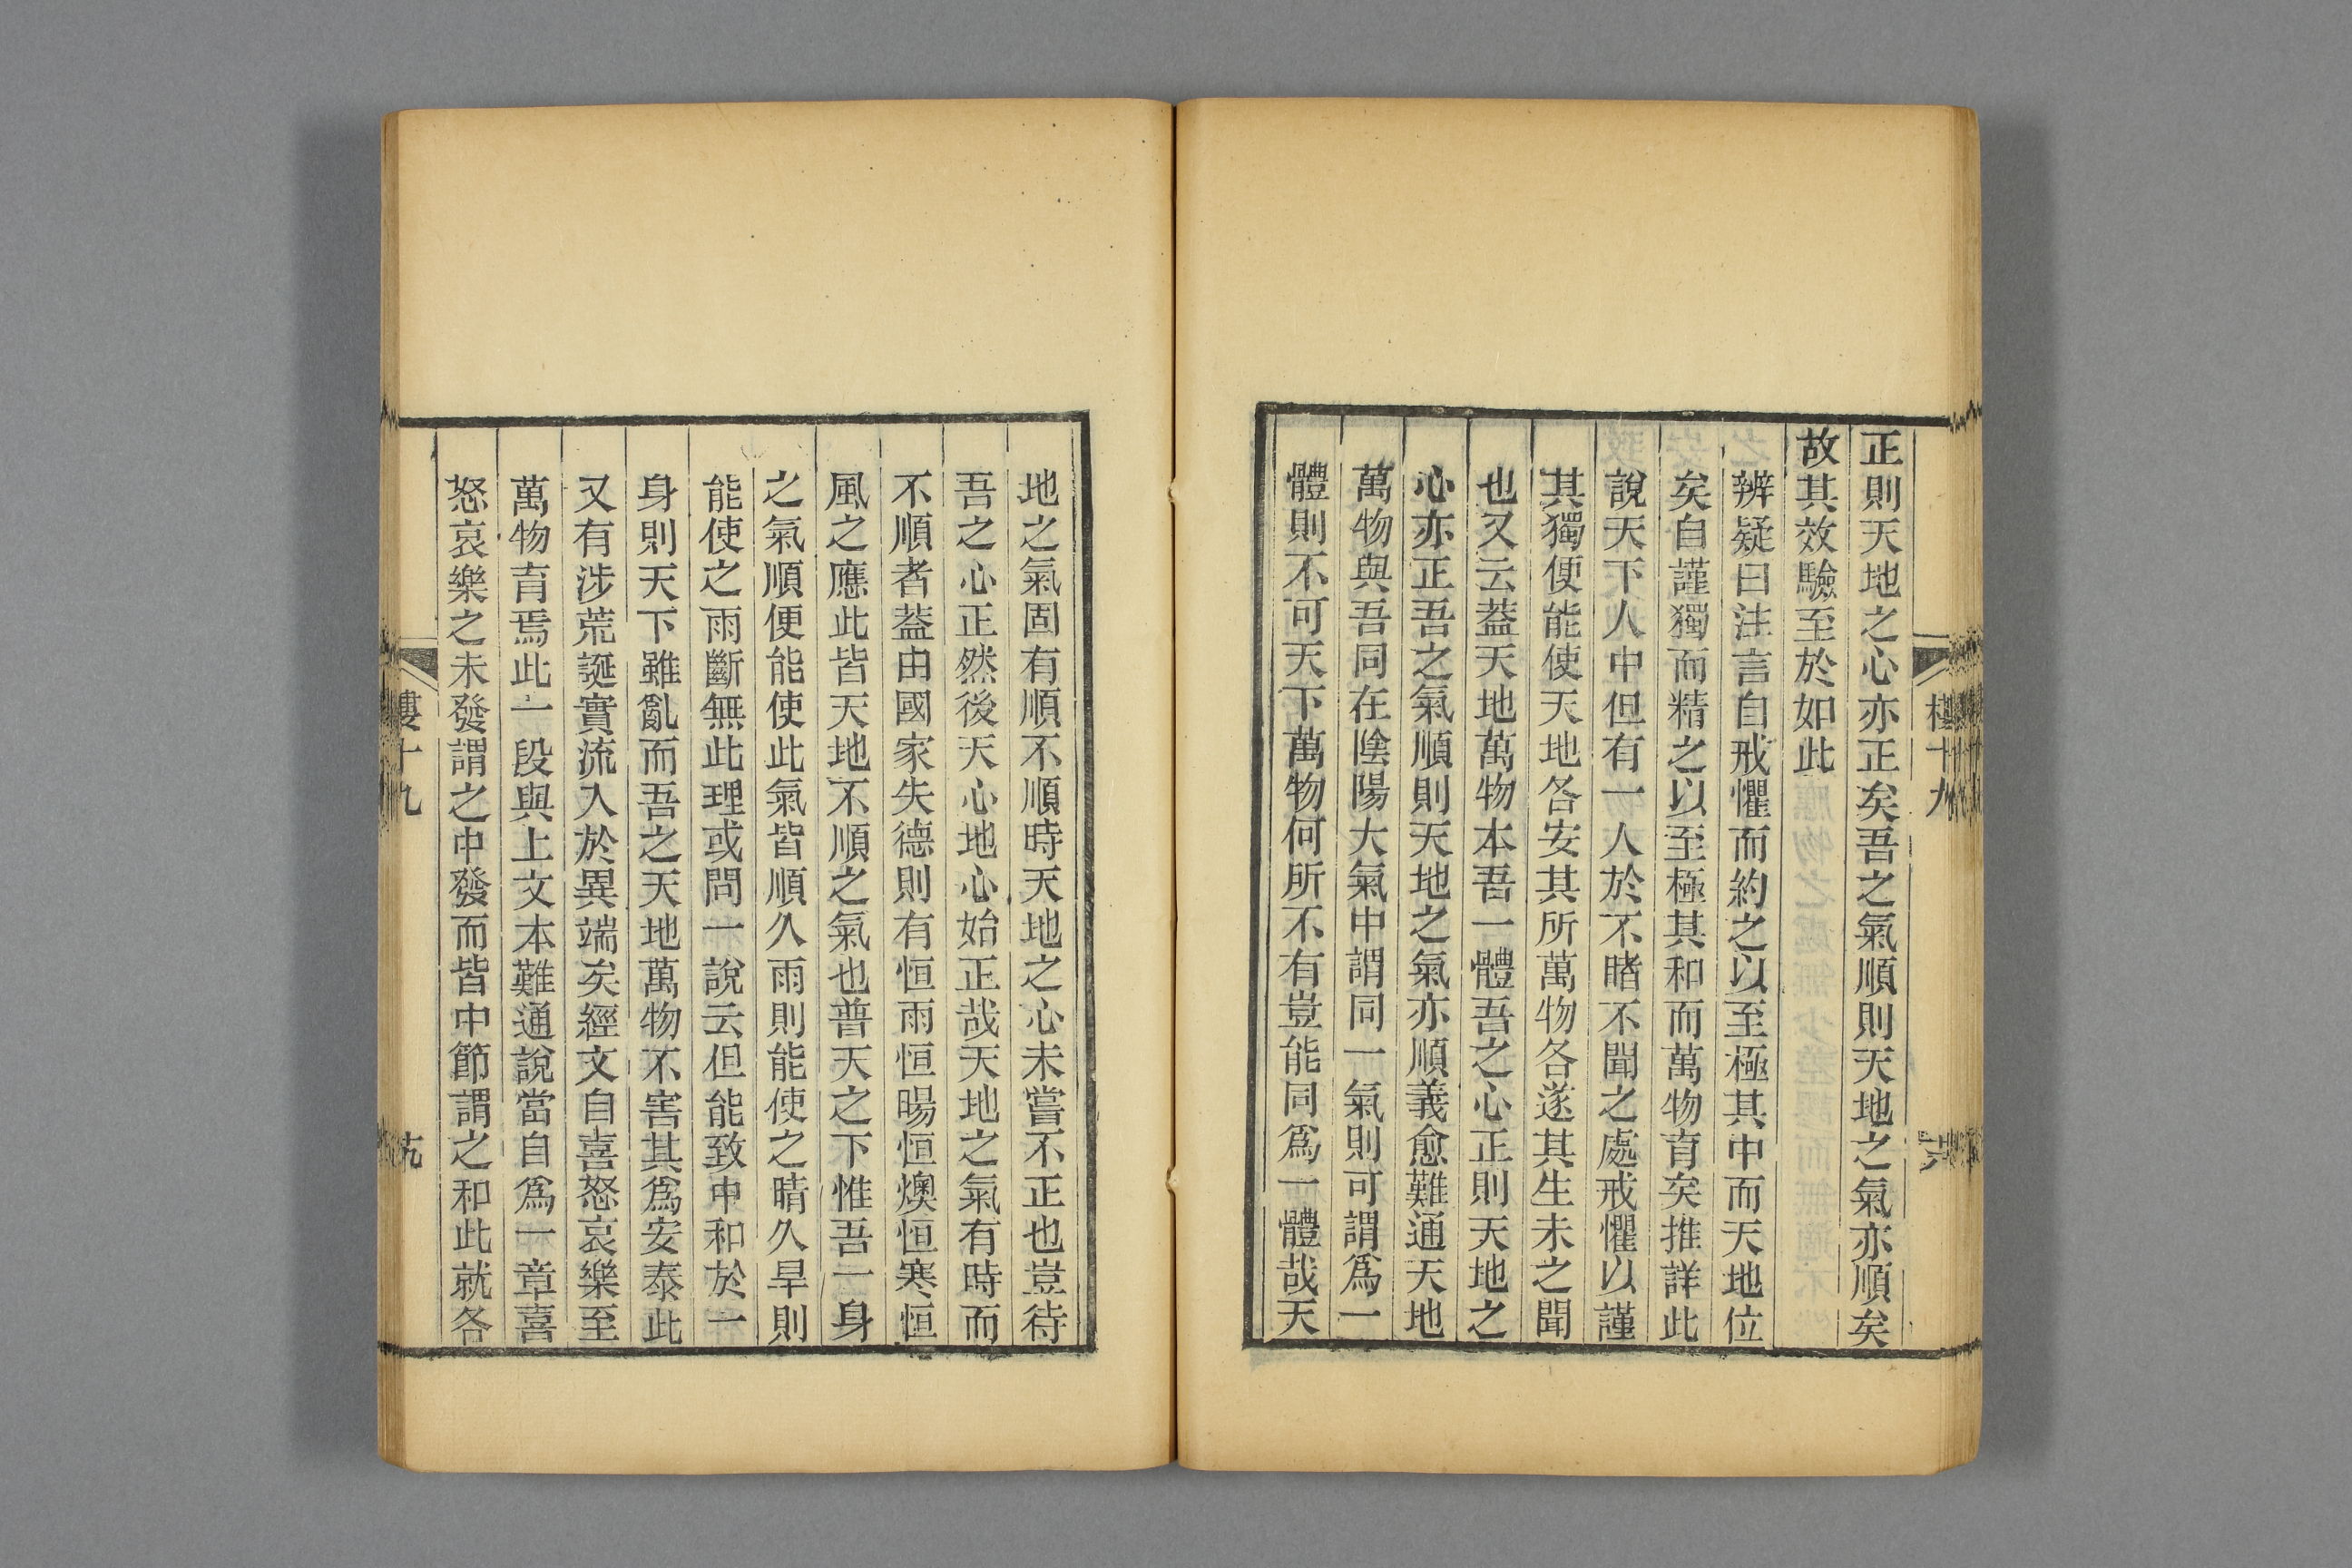 正則天地之心亦正矣吾之氣順則天地之氣亦順矣
故其效驗至於如此
辨疑曰注言自戒懼而約之以至極其中而天地位
矣自謹獨而精之以至極其和而萬物育矣推詳此
說天下人中但有一人於不睹不聞之處戒懼以謹
其獨便能使天地各安其所萬物各遂其生未之聞
也又云葢天地萬物本吾一體吾之心正則天地之
心亦正吾之氣順則天地之氣亦順義愈難通天地
萬物與吾同在陰陽大氣中謂同一氣則可謂爲一
體則不可天下萬物何所不有豈能同爲一體哉天
地之氣固有順不順時天地之心未嘗不正也豈待
吾之心正然後天心地心始正哉天地之氣有時而
不順者葢由國家失德則有恒雨恒暘恒燠恒寒恒
風之應此皆天地不順之氣也普天之下惟吾一身
之氣順便能使此氣皆順久雨則能使之晴久旱則
能使之雨斷無此理或問一說云但能致中和於一
身則天下雖亂而吾之天地萬物不害其爲安泰此
又有涉荒誕實流入於異端矣經文自喜怒哀樂至
萬物育焉此一段與上文本難通說當自爲一章喜
怒哀樂之未發謂之中發而皆中節謂之和此就各
樓十九